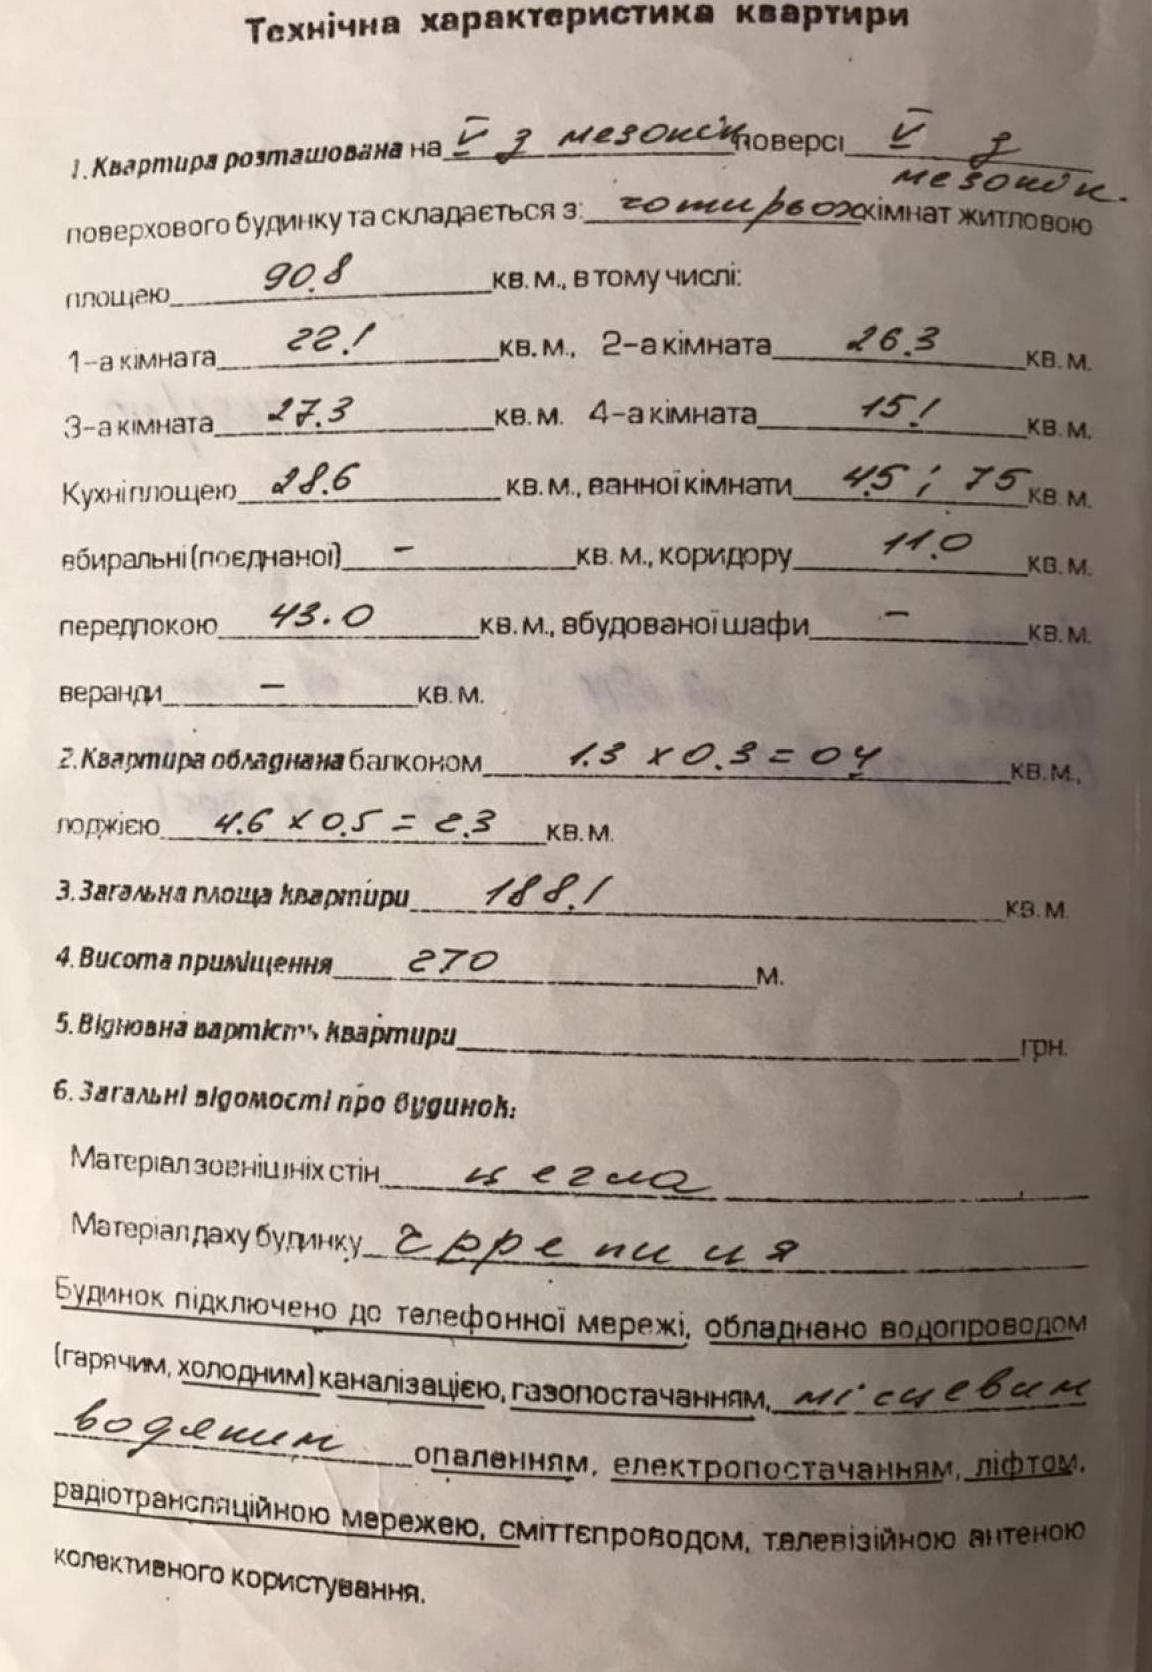 Технічна характеристика квартири
1. Квартира розташована на V з мезонін поверсі V з
мезонін.
поверхового будинку та складається з: чотирьох кімнат житловою
площею 90.8 кв. м., в тому числі:
1-а кімната 22.1 кв. м., 2-а кімната 26.3 кв. м.
3-а кімната 27.3 кв. м. 4-а кімната 15.1 кв. м.
Кухні площею 28.6 кв. м., ванної кімнати 4.5; 7.5 кв. м.
вбиральні (поєднаної) – кв. м., коридору 11.0 кв. м.
передпокою 43.0 кв. м., вбудованої шафи – кв. м.
веранди – кв. м.
2. Квартира обладнана балконом 1.3 х 0.3 = 0.4 кв. м.,
лоджією 4.6 х 0.5 = 2.3 кв. м.
3. Загальна площа квартири 188.1 кв. м
4. Висота приміщення 2.70 м.
5. Відновна вартість квартири грн.
6. Загальні відомості про будинок:
Матеріал зовнішніх стін цегла
Матеріал даху будинку черепиця
Будинок підключено до телефонної мережі, обладнано водопроводом
(гарячим, холодним) каналізацією, газопостачанням, місцевим
водяним опаленням, електропостачанням, ліфтом,
радіотрансляційною мережею, сміттєпроводом, телевізійною антеною
колективного користування.